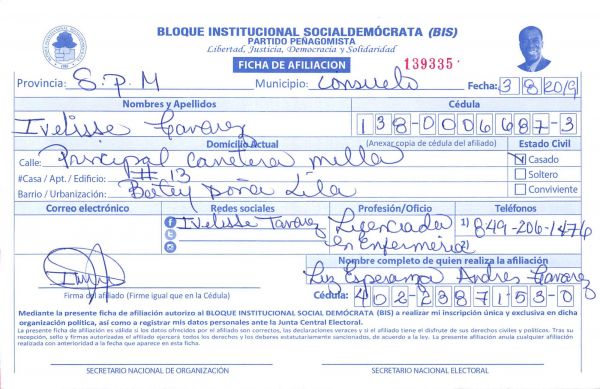 BLOQUE INSTITUCIONAL SOCIALDEMÓCRATA (BIS)
PARTIDO PEÑAGOMISTA
Libertad, Justicia, Democracia y Solidaridad
FICHA DE AFILIACION 139335
Provincia: S.P.M Municipio: Consuelo Fecha: 3 8 2019
Nombres y Apellidos Cédula
Ivelisse Tavarez 138-0006687-3
Domicilio Actual (Anexar copia de cédula del afiliado) Estado Civil
Calle: Principal Carretera Milla Casado
#Casa / Apt. / Edificio: # 13 Soltero
Barrio / Urbanización: Batey Doña Lila Conviviente
Correo electrónico Redes sociales Profesión/Oficio Teléfonos
Ivelisse Tavarez Licenciada 1) 849-206-1476
en Enfermeria 2)
Nombre completo de quien realiza la afiliación
Luz Esperanza Andres Tavarez
Firma del afiliado (Firme igual que en la Cédula) Cédula: 402-2387153-0
Mediante la presente ficha de afiliación autorizo al BLOQUE INSTITUCIONAL SOCIAL DEMÓCRATA (BIS) a realizar mi inscripción única y exclusiva en dicha
organización política, así como a registrar mis datos personales ante la Junta Central Electoral.
La presente ficha de afiliación es válida si los datos ofrecidos por el afiliado son correctos, las declaraciones veraces y si el afiliado tiene el disfrute de sus derechos civiles y políticos. Tras su
recepción, sello y firmas autorizadas el afiliado ejercerá todos los derechos y los deberes estatutariamente sancionados, de acuerdo a la ley. La presente afiliación anula cualquier afiliación
realizada con anterioridad a la fecha que aparece en esta ficha.
SECRETARIO NACIONAL DE ORGANIZACIÓN SECRETARIO NACIONAL ELECTORAL